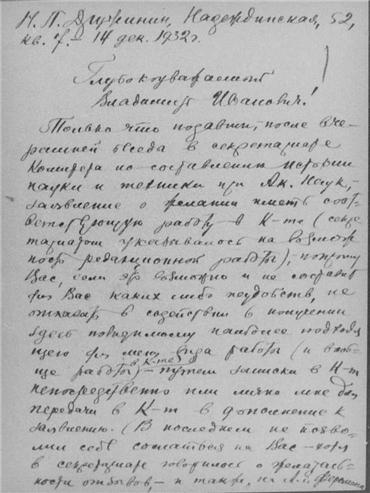 Н. П. Дур, Надеждинская, 52,
кв. 7. – 14 дек. 1932 г.
Глубокоуважаемый
Владимир Иванович!
Только что подавши, после вче-
рашней беседы в секретариате
Комитета по составлению истории
науки и техники при Ак. Наук, –
заявление о желании иметь соот-
ветствующую работу в К-те (секре-
тариатом указывалось на возмож-
ность редакционной работы), – попрошу
Вас, если это возможно и не составит
для Вас каких либо неудобств, не
отказать в содействии в получении
здесь повидимому наиболее подходя-
щего для меня вида работы (и вооб-
ще работы в К-те) – путем записки в К-т
непосредственно или лично мне для
передачи в К-т в дополнение к
заявлению. (В последнем не позво-
лил себе сослаться на Вас – хотя
в секретариате говорилось о желатель-
ности отзывов, – и также, на А. Е. Ферсмана